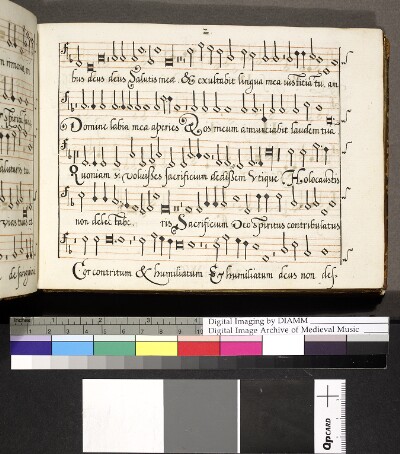 bus deus deus Salutis meæ. & exultabit lingua mea iustitiā tu. am
Domine labia mea aperies & os meum annunciabit laudem tuā
Quoniam si voluisses sacrificium dedissem Vtique Holocaustis
non delectabe. ris Sacrificium Deo Spiritus contribulatus
Cor contritum & humiliatum & humiliatum deus non des-
Digital Imaging by DIAMM
Digital Image Archive of Medieval Music
QPCARD